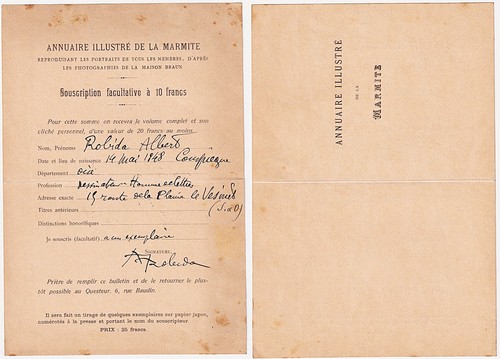 ANNUAIRE ILLUSTRÉ DE LA MARMITE
REPRODUISANT LES PORTRAITS DE TOUS LES MEMBRES, D'APRÈS
LES PHOTOGRAPHIES DE LA MAISON BRAUN
Souscription facultative à 10 francs
Pour cette somme on recevra le volume complet et son
cliché personnel, d'une valeur de 20 francs au moins.
Nom, Prénoms Robida Albert
Date et lieu de naissance 14 Mai 1848 Compiègne
Département Oise
Profession Dessinateur - Homme de lettres
Adresse exacte 15 route de la Plaine le Vésinet
Titres antérieurs (S. et O)
Distinctions honorifiques
Je souscris (facultatif) à un exemplaire
SIGNATURE,
A Robida
Prière de remplir ce bulletin et de le retourner le plus-
tôt possible au Questeur, 6, rue Baudin.
Il sera fait un tirage de quelques exemplaires sur papier japon,
numérotés à la presse et portant le nom du souscripteur.
PRIX : 25 francs.
ANNUAIRE ILLUSTRÉ
DE LA
MARMITE